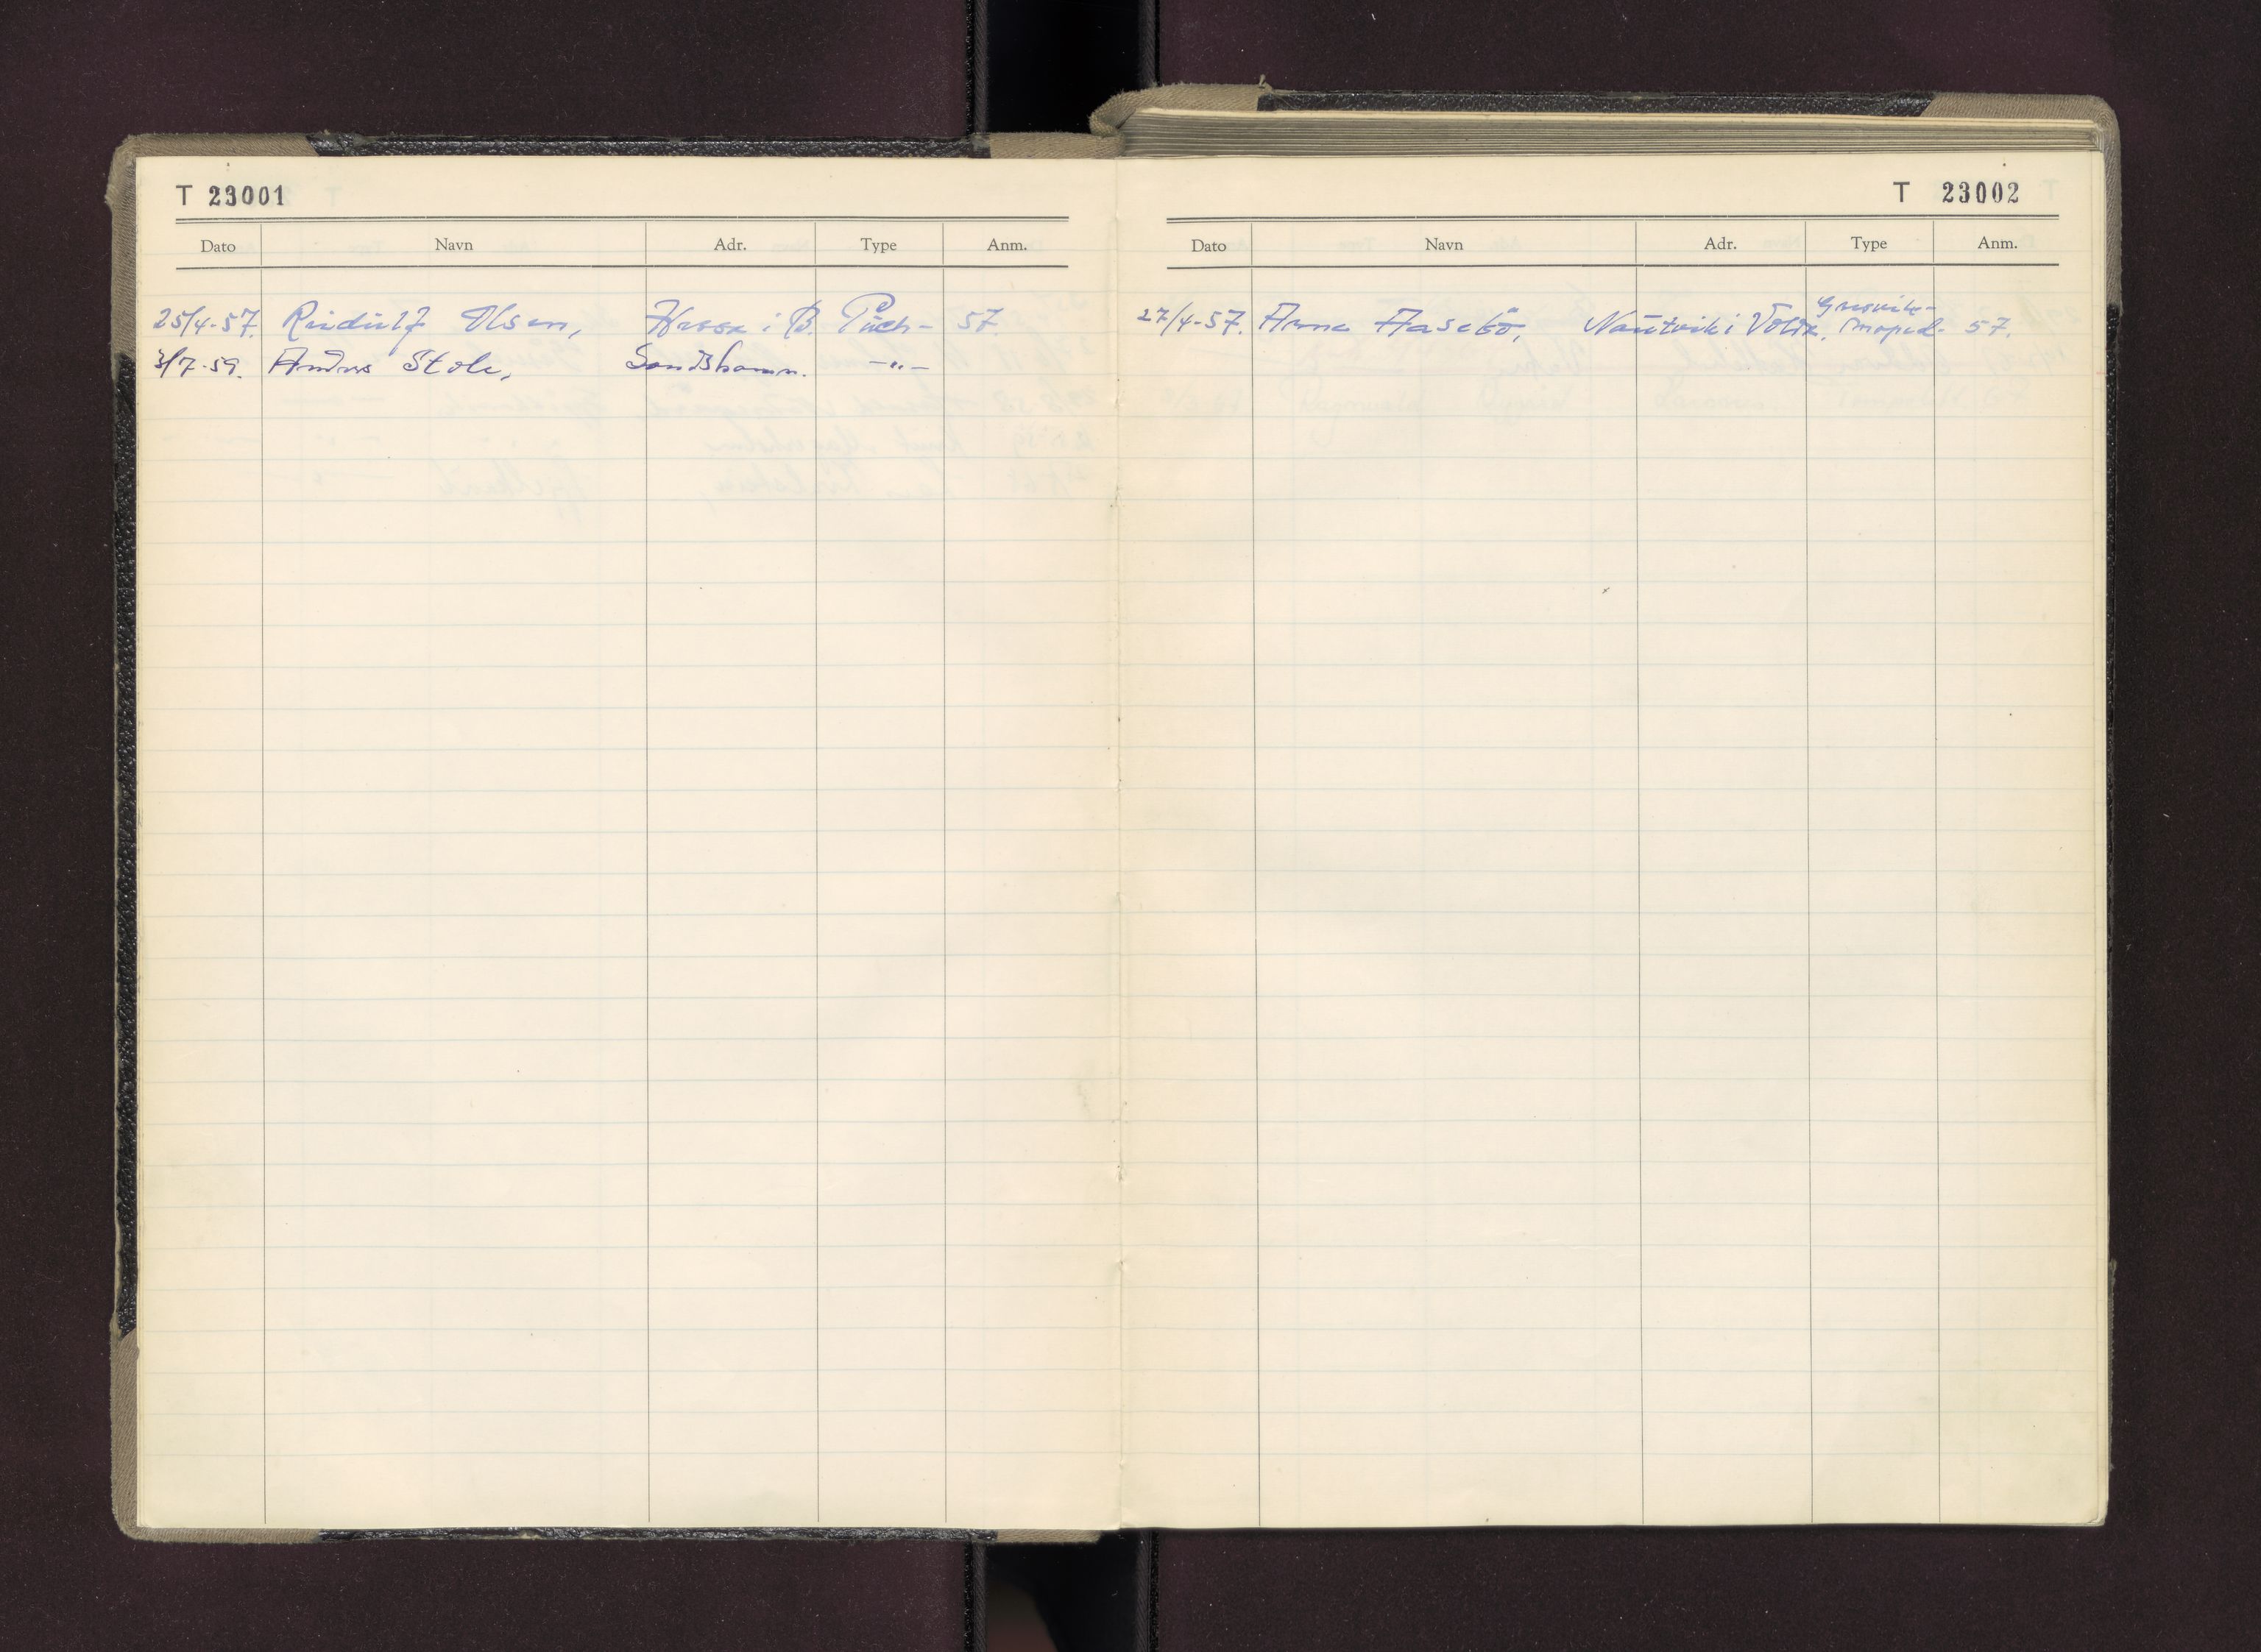 T 23001
Dato Navn Adr. Type Anm.
25/4-57. Rindulf Olsen, Hessa i B. Puch- 57
3/7-59. Anders Stole, Sandshamn. -"-
T 23002
Dato Navn Adr. Type Anm.
27/4-57. Arne Aasebö, Nautvik i Volda. Gresvik-
Moped- 57.